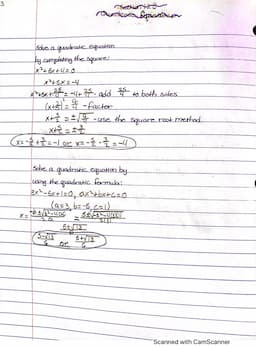 3
Solve a quadratic equation
by completing the square:
x²+5x+4=0
x²+5x=-4
x²+5x+25/4=-4+25/4- add 25/4 to both sides
(x+5/2)²=9/4 -factor
x+5/2=±√9/4 -use the square root method
x+5/2=±3/2
x=-5/2+3/2=-1 or x=-5/2-3/2=-4
Solve a quadratic equation by
using the quadratic formula:
3x²-5x+1=0, ax²+bx+c=0
(a=3, b=-5, c=1)
5±√13
5-√13/6 or 5+√13/6
Scanned with CamScanner